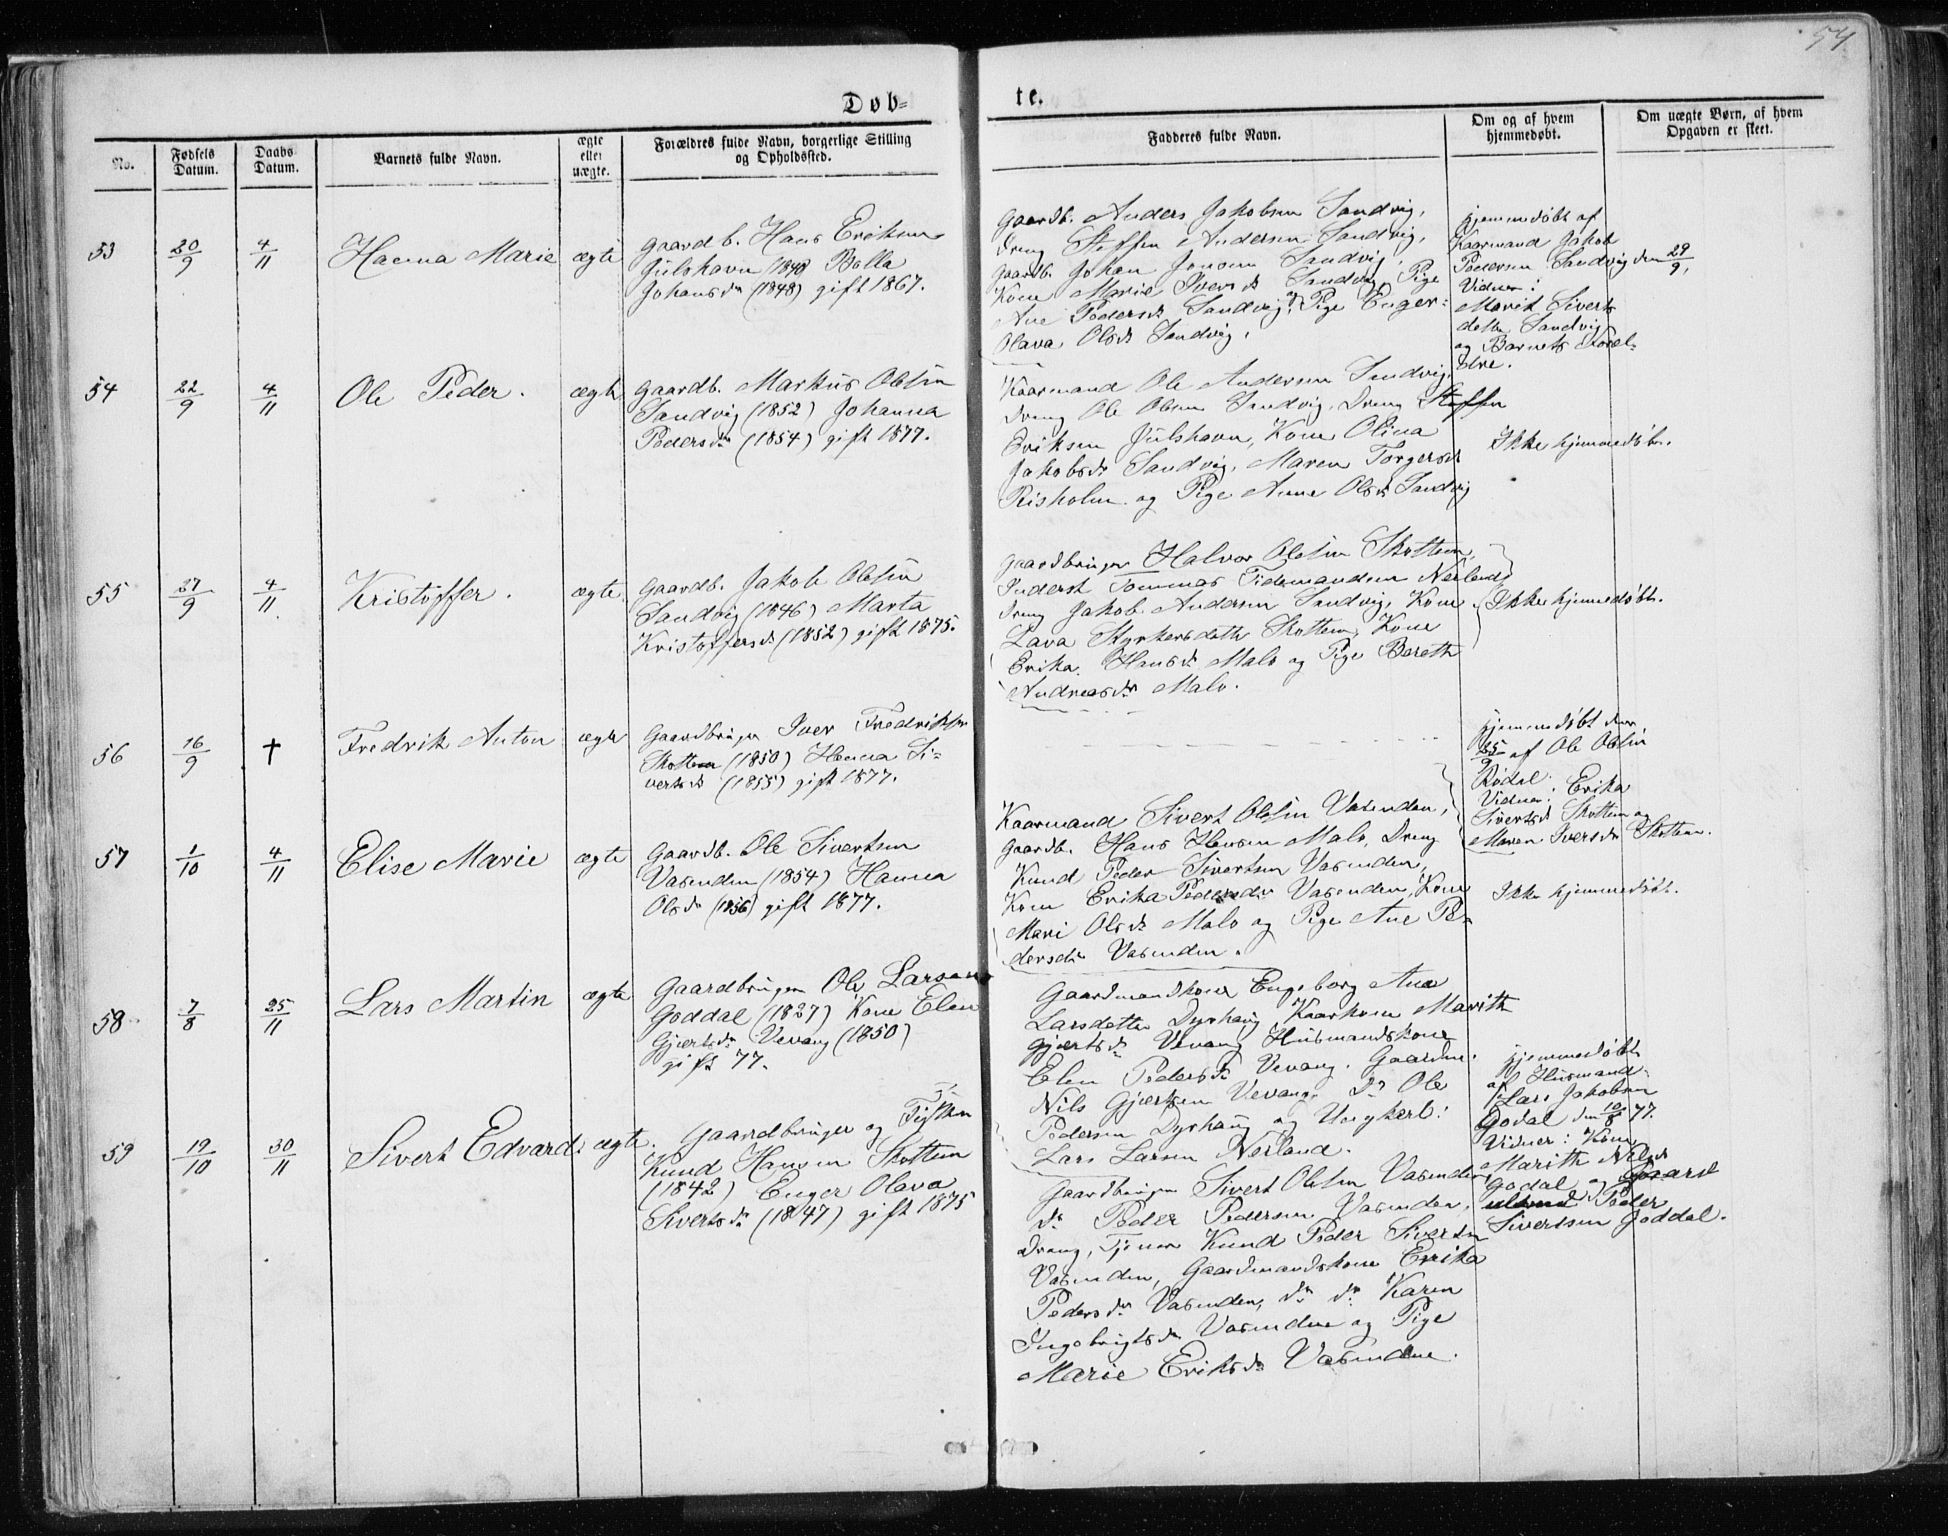 54
Døb=
te.
No.
Fødsels Datum.
Daabs Datum.
Barnets fulde Navn.
ægte eller uægte.
Forældres fulde Navn, borgerlige Stilling
og Opholdssted.
Fadderes fulde Navn.
Om og af hvem
hjemmedøbt.
Om uægte Børn, af hvem
Opgaven er skeet.
53
20/9
4/11
Hanna Marie
ægte
Gaardb. Hans Eriksen
Julshavn (1848) Balla
Johansdr (1848) gift 1867.
Gaardb. Anders Jakobsen Sandvig,
Dreng Steffen Andersen Sandvig,
Gaardb. Johan Jonsen Sandvig,
Kone Marie Iversdr Sandvig, Pige
Ane Pedersdr Sandvig, og Pige Enger=
Olava Olsdr Sandvig.
Hjemmedøbt af
Kaarmand Jakob
Pedersen Sandvig den 29/9,
Vidner:
Marit Siverts
datter Sandvig
og Barnets Foræl-
dre.
54
22/9
4/11
Ole Peder.
ægte
Gaardb. Markus Olsen
Sandvig (1852) Johanna
Pedersdr (1854) gift 1877.
Kaarmand Ole Andersen Sandvig,
Dreng Ole Olsen Sandvig, Dreng Steffen
Eriksen Julshavn, Kone Olina
Jakobsdr Sandvig, Maren Torgersdr
Risholm og Pige Anne Olsdr Sandvig
Ikke hjemmedøbt.
55
27/9
4/11
Kristoffer.
ægte
Gaardb. Jakob Olsen
Sandvig (1846) Marta
Kristoffersdr (1852) gift 1875.
Gaardbruger Halvor Olsen Skottem,
Inderst Tommas Tidemandsen Nerland,
Dreng Jakob Andersen Sandvig, Kone
Lava Styrkersdatter Skottem, Kone
Erika Hansdr Malo og Pige Bereth
Andreasdr Malo.
Ikke hjemmedøbt.
56
16/9
†
Fredrik Anton
ægte
Gaardbruger Iver Fredriksen
Skottem (1850) Hanna Si=
vertsdr (1855) gift 1877.
Hjemmedøbt den
25/9 af Ole Olsen
Rødal.
Vidner: Erika
Sivertsdr Skottem og
Maren Iversdr Skottem.
57
1/10
4/11
Elise Marie
ægte
Gaardb. Ole Sivertsen
Vasenden (1854) Hanna
Olsdr (1856) gift 1877.
Kaarmand Sivert Olsen Vasenden,
Gaardb. Hans Hansen Malo, Dreng
Knud Peder Sivertsen Vasenden,
Kone Erika Pedersdr Vasenden, Kone
Mari Olsdr Malo og Pige Ane Pe-
dersdr Vasenden.
Ikke hjemmedøbt.
58
7/8
25/11
Lars Martin
ægte
Gaardbruger Ole Larsen
Goddal (1827) Kone Elen
Gjertsdr Vevang (1850)
gift 77.
Gaardmandskone Engeborg Ane
Larsdatter Dyrhaug, Kaarkone Marith
Gjertsdr Vevang Husmandskone
Elen Pedersdr Vevang. Gaardm.
Nils Gjertsen Vevang. Do Ole
Pedersen Dyrhaug og Ungkarl:
Lars Larsen Nerland.
Hjemmedøbt
af Husmand
Lars Jakobsen
Godal den 10/8 77.
Vidner: Kone
Marith Nilsdr
Godal og Gaard
Peder
Sivertsen Goddal.
59
19/10
30/11
Sivert Edvard
ægte.
Gaardbruger og Fisker
Knud Hansen Skottem
(1842) Enger Olava
Sivertsdr (1847) gift 1875
Gaardbruger Sivert Olsen Vasenden,
do Peder Pedersen Vasenden,
Dreng, Tjener Knud Peder Sivertsen
Vasenden, Gaardmandskone Erika
Pedersdr Vasenden, do do Karen
Ingebrigtsdr Vasenden og Pige
Marie Eriksdr Vasenden.